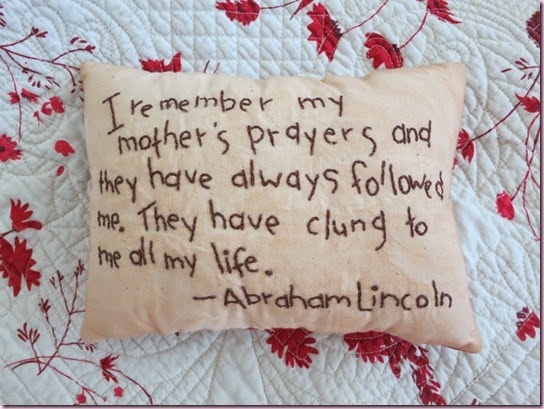 I remember my
mother's prayers and
they have always followed
me. They have clung to
me all my life.
—Abraham Lincoln